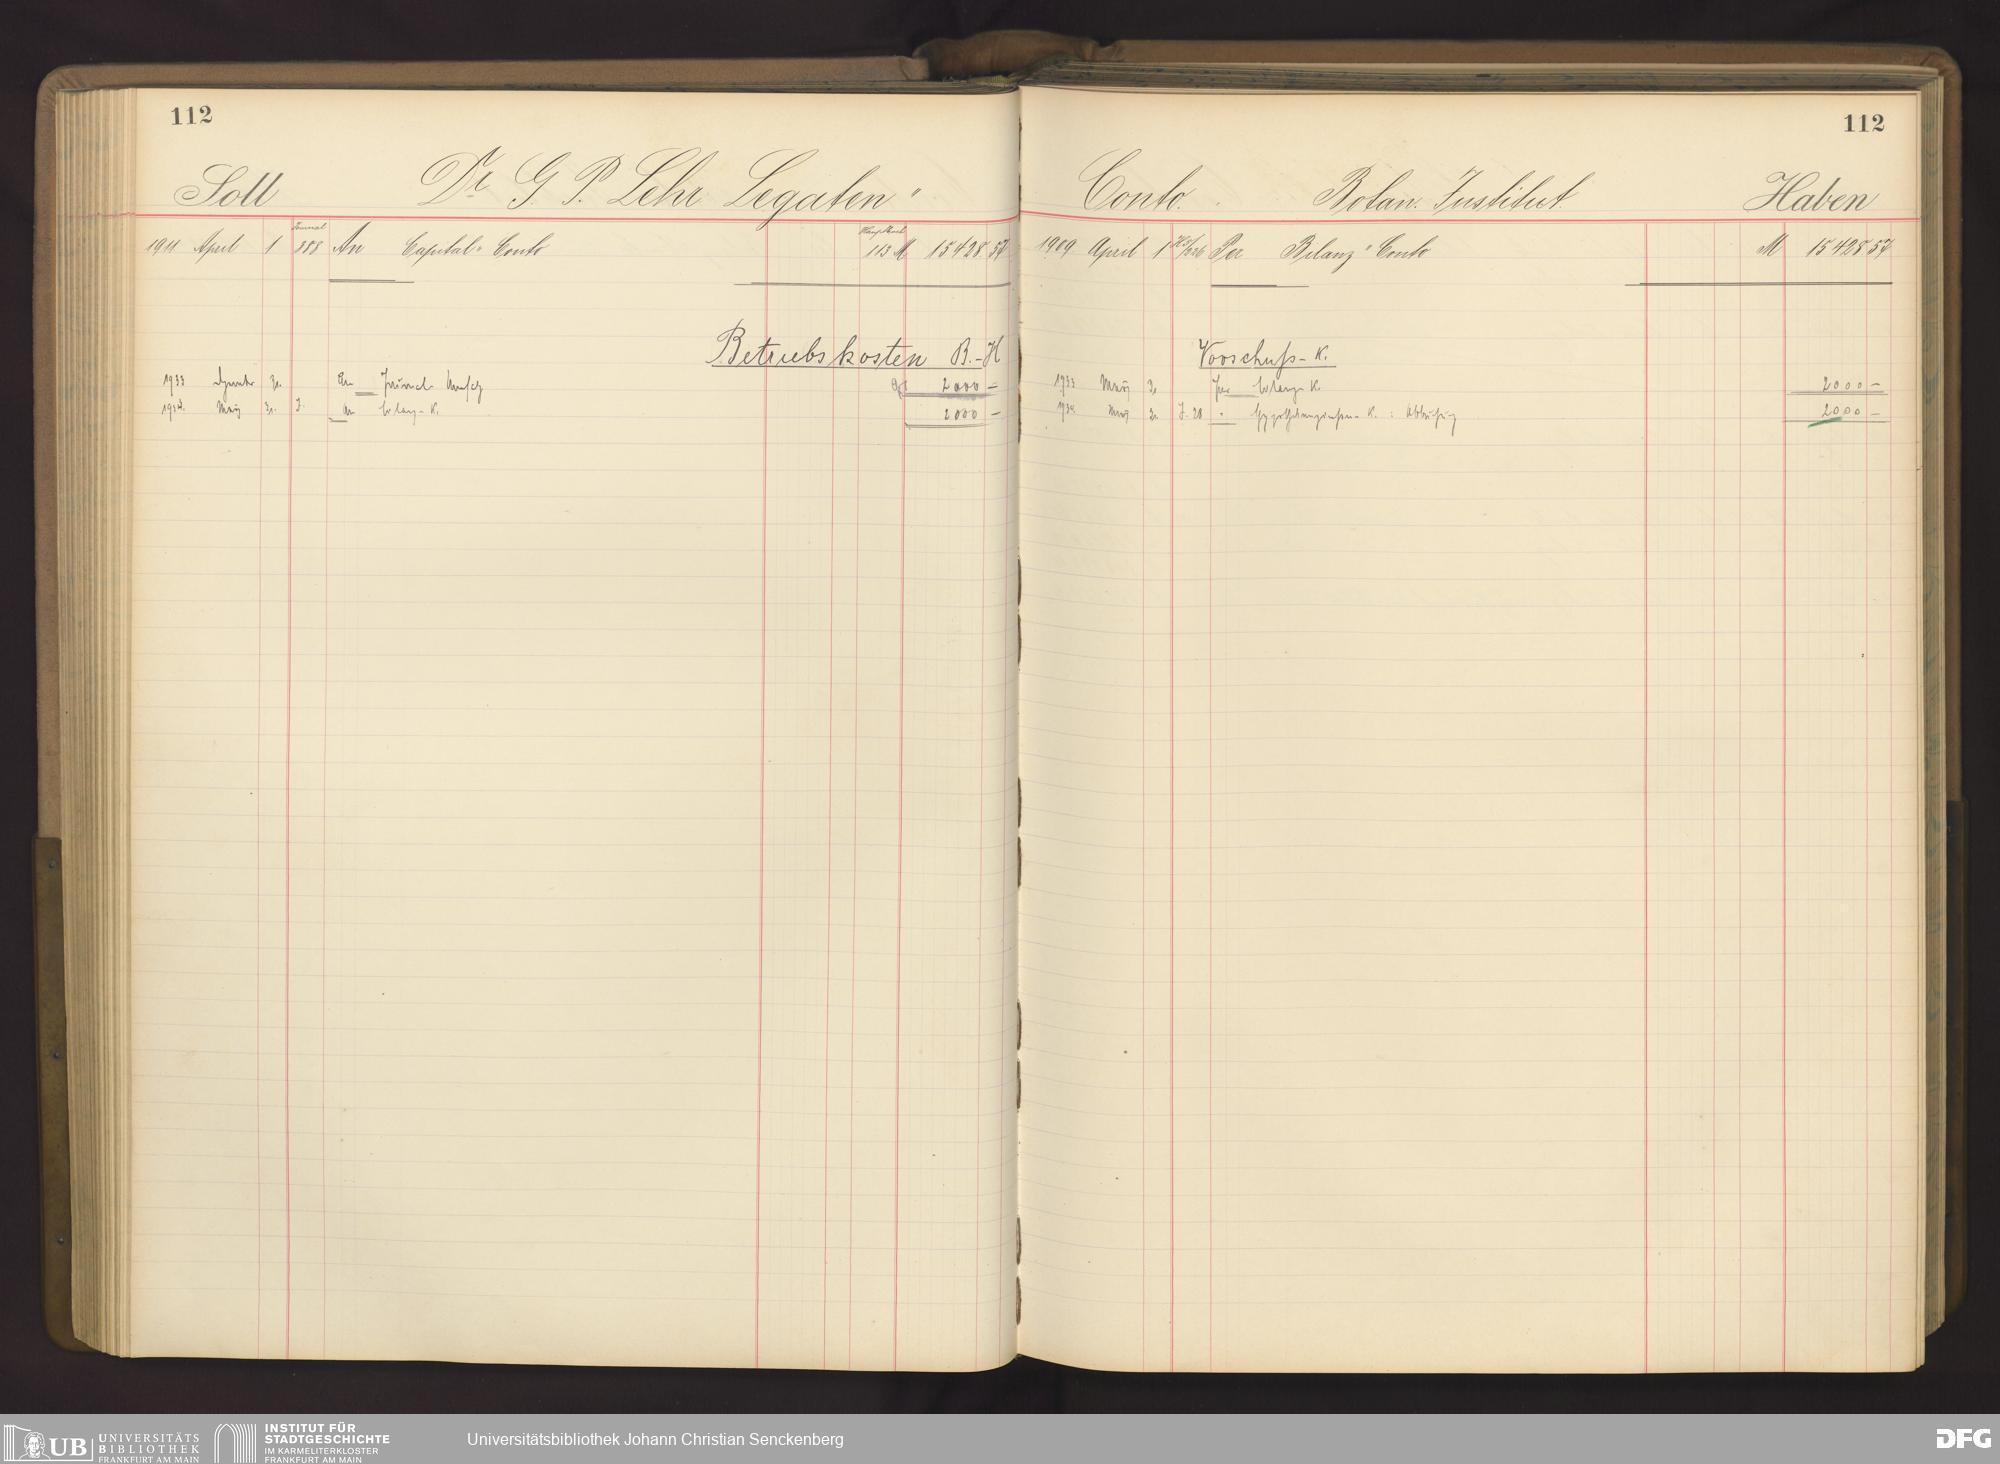 112
Soll Dr. G. P. Lehr Legaten"
Journal Hauptbuch
1911 April 1 388 An Capital" Conto 113 M 15428.57
Betriebskosten B.-H
1933 31. An 2000 —
1934. März 31. J. An Bilanz-K. 2000 —
112
Conto. Botan. Institut. Haben
1909 April 1 Per Bilanz" Conto M 15428.57
Vorschuß-K.
1933 März 31 per Bilanz-K 2000 —
1934 März 31. J. 28 " K. : 2000 —
UB UNIVERSITÄTS
BIBLIOTHEK
FRANKFURT AM MAIN
INSTITUT FÜR
STADTGESCHICHTE
IM KARMELITERKLOSTER
FRANKFURT AM MAIN
Universitätsbibliothek Johann Christian Senckenberg
DFG